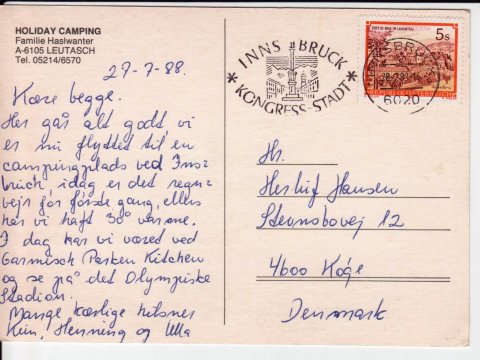 HOLIDAY CAMPING
Familie Haslwanter
A-6105 LEUTASCH
Tel. 05214/6570
27-7-88.
Kære begge.
Her går alt godt, vi
er nu flyttet til en
campingplads ved Inns
bruck, idag er det regn
vejr for första gang, ellers
har vi haft 30° varme.
I dag har vi været ved
Garmisch Parken Kitchen
og se på det Olympiske
Stadion.
Mange kærlige hilsner
Kim, Henning og Ulla
INNSBRUCK
KONGRESS-STADT
6020
5s
REPUBLIK ÖSTERREICH
Hr.
Herluf Hansen
Stevnsbovej 12
4600 Köge
Denmark